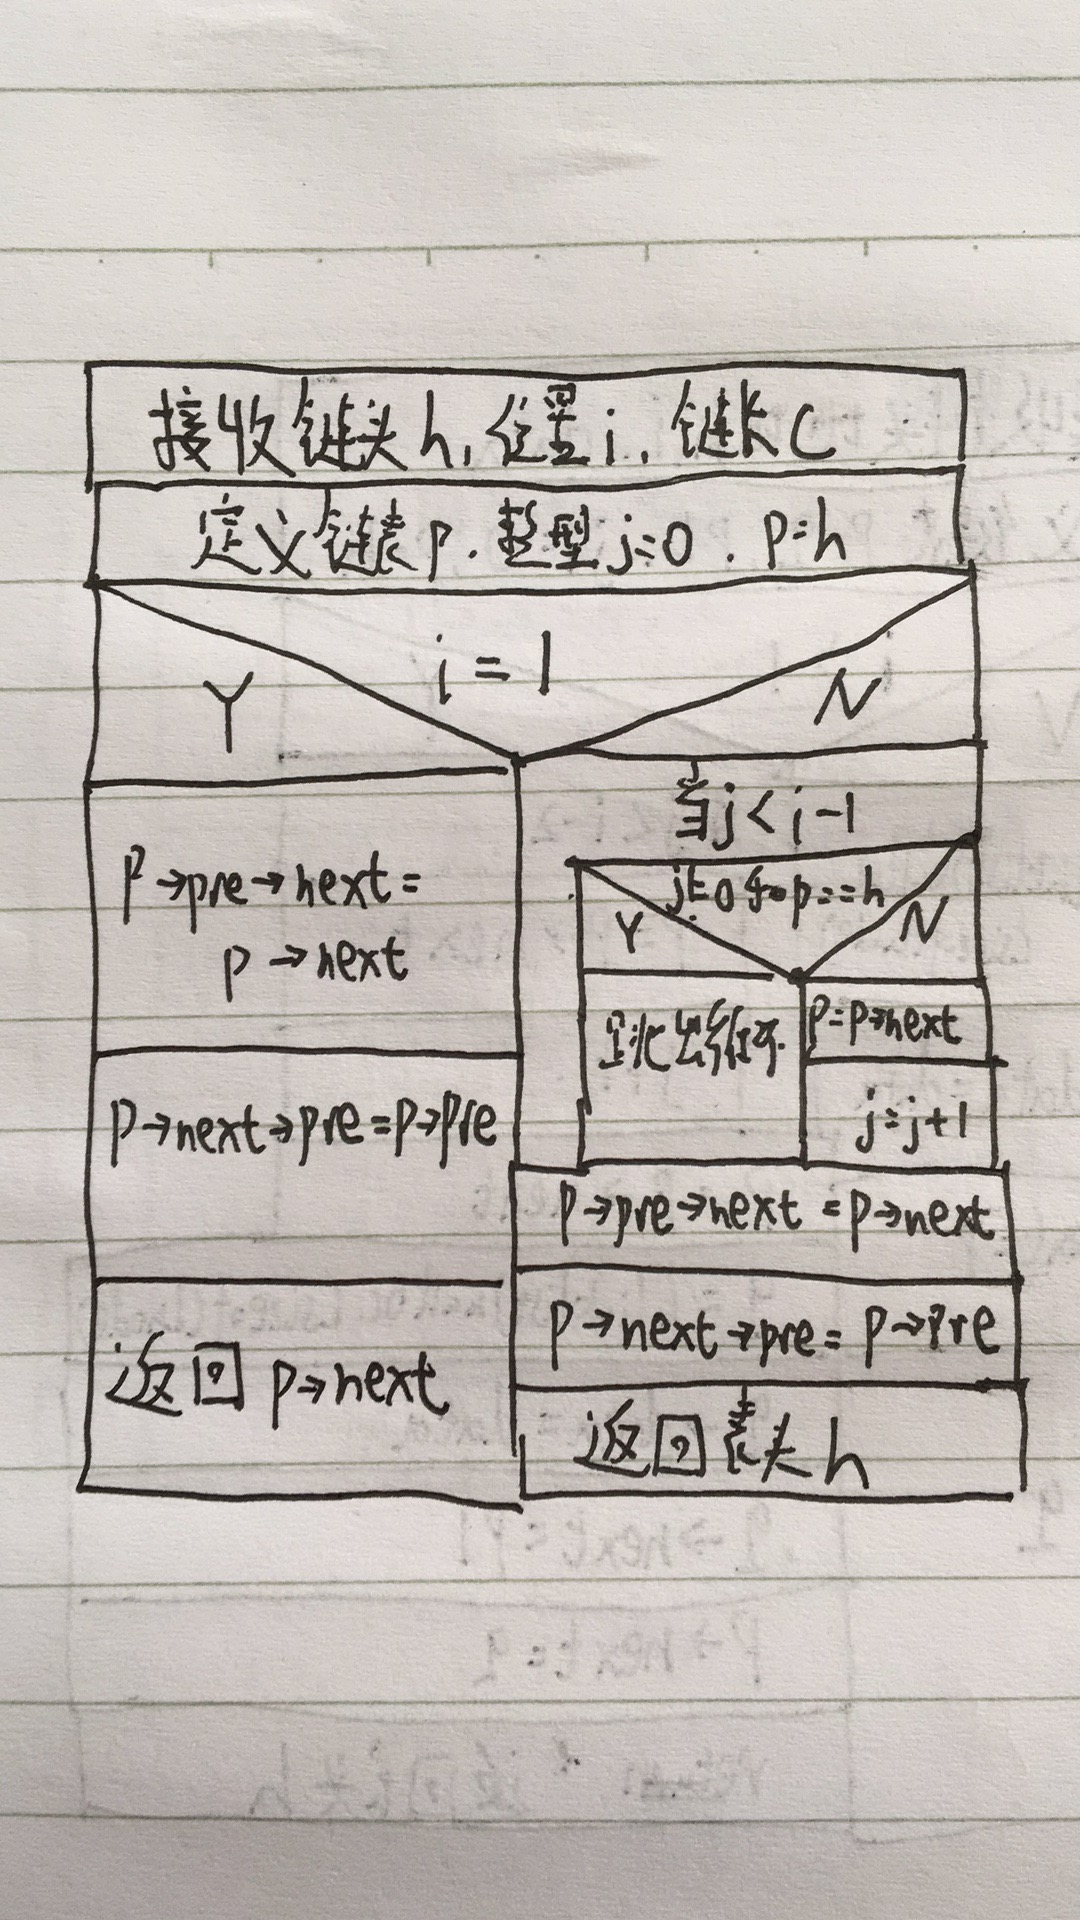 接收链头h, 位置i, 链长C
定义链表p. 整型j=0. p=h
i=1
Y
N
P→pre→next=
p→next
p→next→pre=p→pre
返回 p→next
当j<i-1
j≠0和p==h
Y
N
跳出循环
P=P→next
j=j+1
p→pre→next=p→next
p→next→pre=p→pre
返回表头h